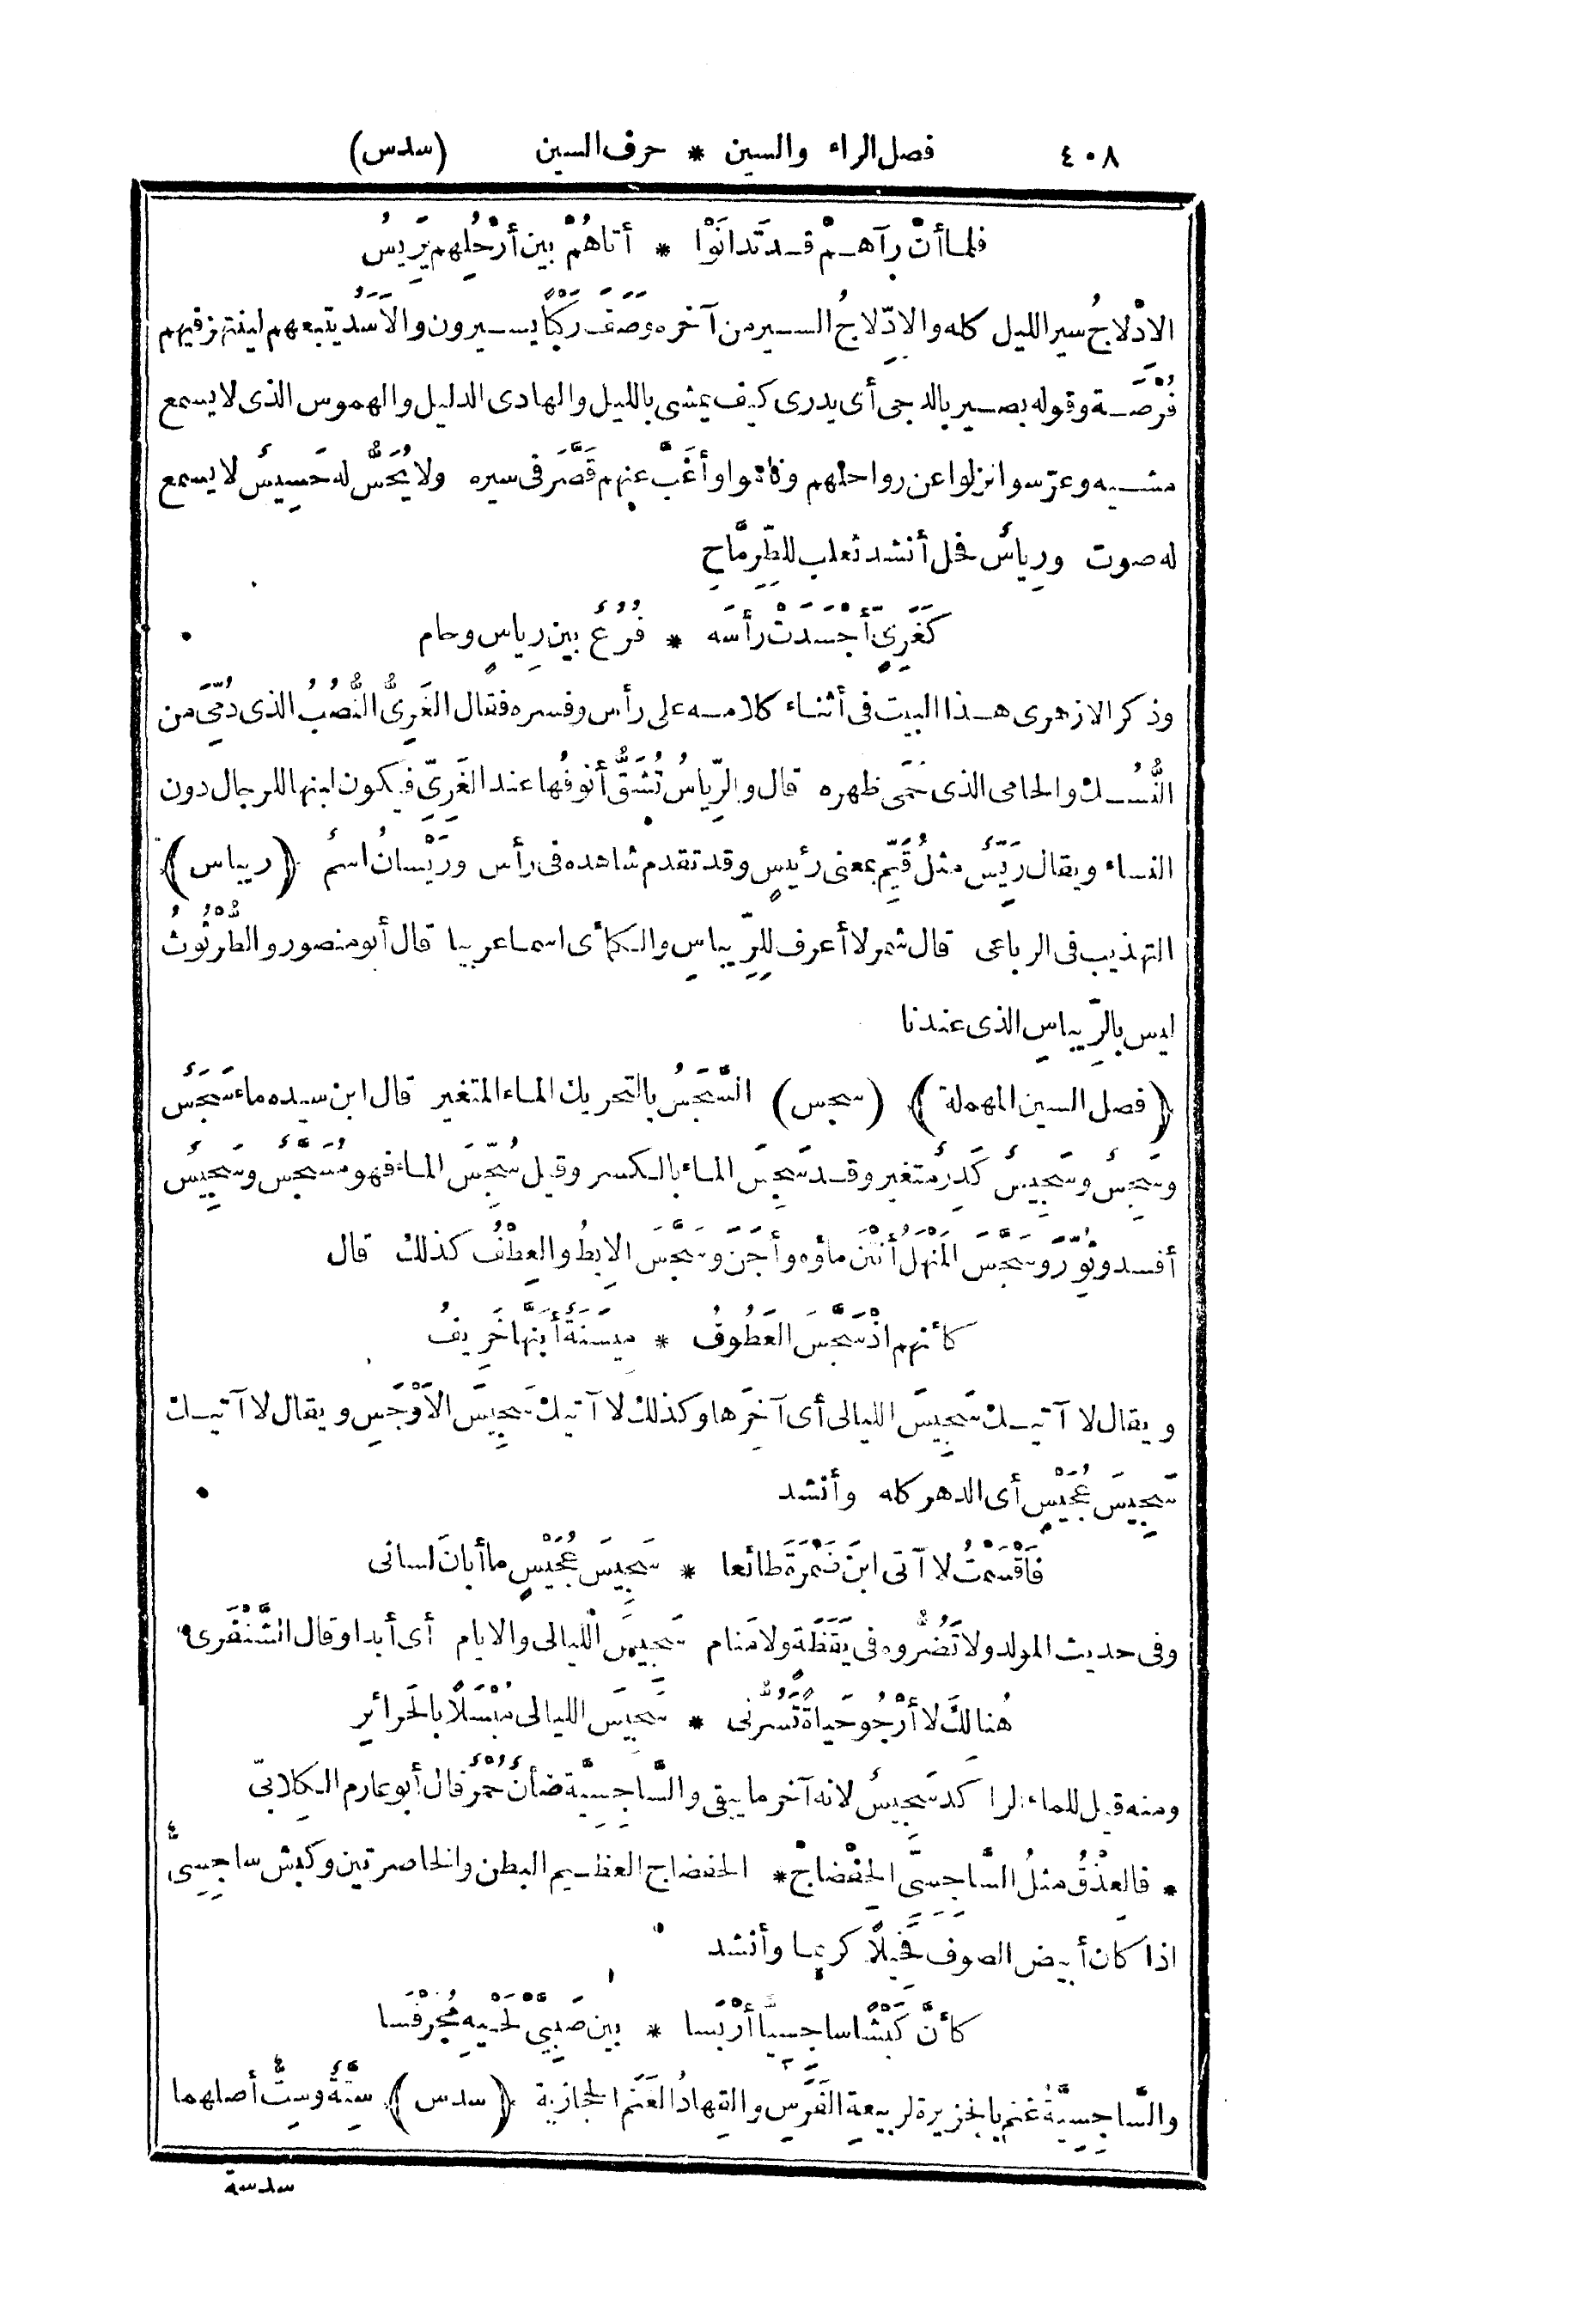 ٤٠٨ فصل الراء والسين * حرف السين (سدس)
فلما أنْ رآهــمْ قــد تَدانَوْا * أتاهُمْ بين أرْحُلِهم يَرِيسُ
الادْلاجُ سير الليل كله والادِّلاجُ الســير من آخره وَصَفَ رَكْبًا يســيرون والاَسَدُ يتبعهم لينتهز فيهم
فُرْصَــة وقوله بصــير بالدجى أى يدرى كيف يمشى بالليل والهادى الدليل والهموس الذى لا يسمع
مشــيه وعرّسوا نزلوا عن رواحلهم وناموا وأَغَبَّ عنهم قَصَّرَ فى سيره ولا يُحَسُّ له حَسِيسٌ لا يسمع
له صوت ورِياسٌ فحل أنشد ثعلب للطِّرِمَّاحِ
كَغَرِىٍّ أَجْسَدَتْ رأسَه * فُرُعٌ بين رِياسٍ وحام
وذكر الازهرى هــذا البيت فى أثناء كلامــه على رأس وفسره فقال الغَرِىُّ النُّصُبُ الذى دُمِّىَ من
النُّسُــك والحامى الذى حَمَى ظهره قال والرِّياسُ تُشَقُّ أُنوفُها عند الغَرِىِّ فيكون لبنها للرجال دون
النساء ويقال رَيِّسٌ مثلُ قَيِّم بمعنى رئيسٍ وقد تقدم شاهده فى رأس ورَيْسانُ اسمٌ (ريباس)
التهذيب فى الرباعى قال شمر لا أعرف للرِّيباسِ والكمأى اسما عربيا قال أبو منصور والطُّرْثُوثُ
ليس بالرِّيباسِ الذى عندنا
(فصل السين المهملة) (سجس) السَّجَسُ بالتحريك الماء المتغير قال ابن سيده ماء سَجَسٌ
وسَجِسٌ وسَجِيسٌ كَدِرٌ متغير وقــد سَجِسَ الماء بالكسر وقيل سُجِّسَ الماء فهو مُسَجَّسٌ وسَجِيسٌ
أفسد وثُوِّرَ وسَجَّسَ المَنْهَلُ أنْتَن ماؤه وأجَنَ وسَجَّسَ الاِبطُ والعِطْفُ كذلك قال
كأنهم اذْ سَجَّسَ العَطُوفُ * مِيسَنَةٌ أبَنَّها خَرِيفُ
ويقال لا آتيــك سَجِيسَ الليالى أى آخِرَها وكذلك لا آتيك سَجِيسَ الاَوْجَسِ ويقال لا آتيــك
سَجِيسَ عُجَيْسٍ أى الدهر كله وأنشد
فَأقْسَمْتُ لا آتى ابنَ ضَمْرَةَ طائعا * سَجِيسَ عُجَيْسٍ ما أبانَ لسانى
وفى حديث المولد ولا تَضُرُّوه فى يَقَظَة ولا مَنام سَجِيسَ الليالى والايام أى أبدا وقال الشَّنْفَرى
هُنا لكَ لا أرْجُو حَياةً تَسُرّنى * سَجِيسَ الليالى مُبْسَلًا بالجَرائرِ
ومنه قيل للماء الراكد سَجِيسٌ لانه آخر ما يبقى والسَّاجِسِيَّة ضأنٌ حُمْرٌ قال أبو عارم الكِلابىّ
* فالعِذْقُ مثلُ السَّاجِسِىِّ الحِفْضاجْ * الحفضاج العظيم البطن والخاصرتين وكبش ساجِسِىٌّ
اذا كان أبيض الصوف فَحِيلًا كريما وأنشد
كأنّ كَبْشًا ساجِسِيًّا أرْبَسا * بين صَبِيَّىْ لَحْيِهِ مُجَرْفَسَا
والسَّاجِسِيَّةُ غنم بالجزيرة لربيعةِ الفَرَسِ والقِهادُ الغَنَم الحجازية (سدس) سِتَّةٌ وسِتٌّ أصلهما
سدسة